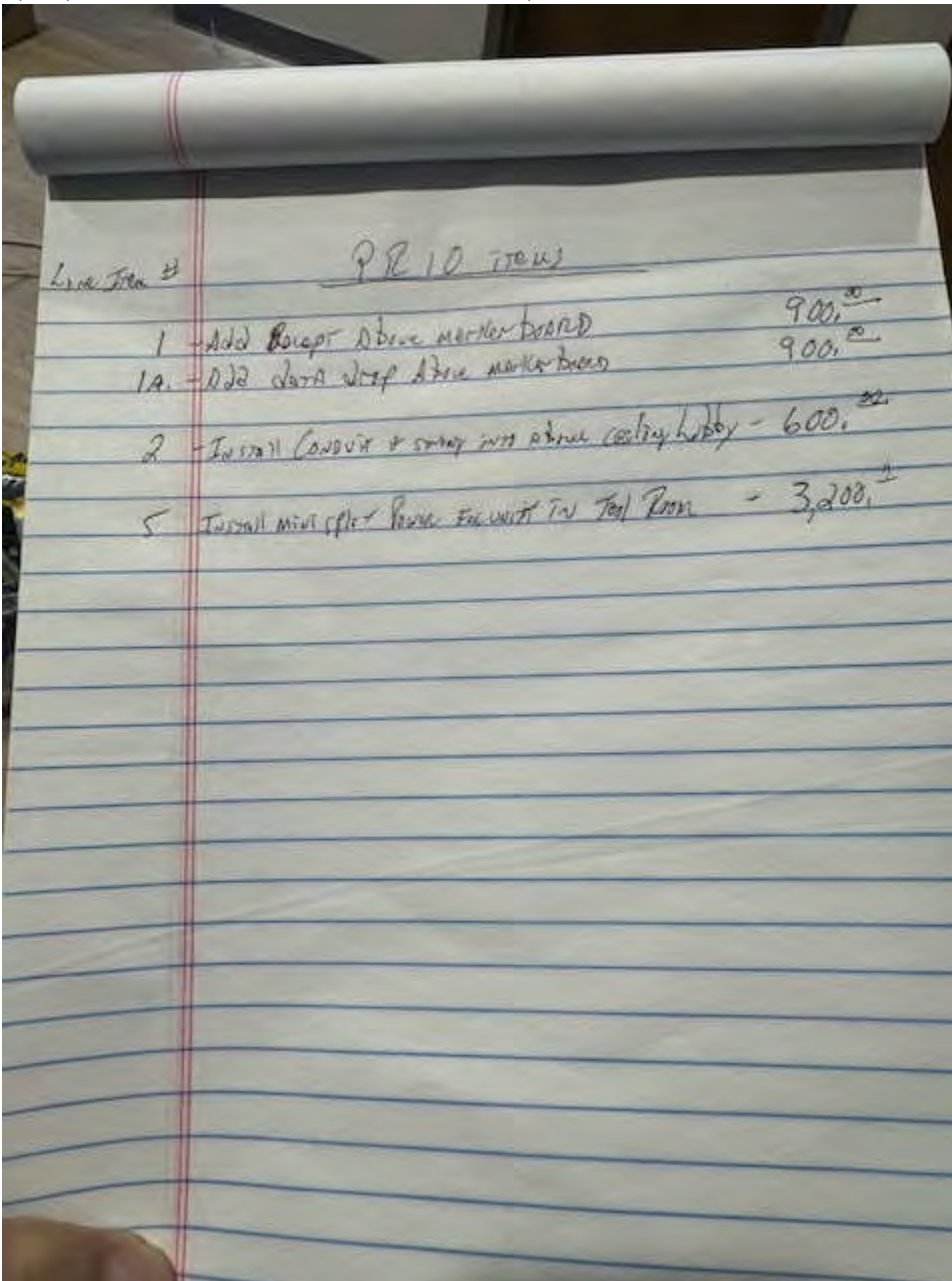 PR 10 items
Line Item #
1 - Add Recept Above marker board 900.00
1A. - Add data drop Above marker board 900.00
2 - Install Conduit & into above ceiling lobby - 600.00
5 Install mini split Power For unit in Tool Room - 3,200.